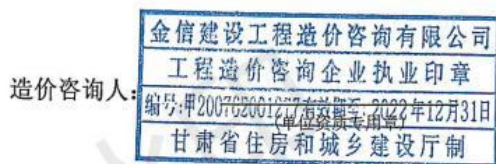 金信建设工程造价咨询有限公司
工程造价咨询企业执业印章
造价咨询人:
编号:甲200762001267有效期至:2022年12月31日
(单位资质专用章)
甘肃省住房和城乡建设厅制